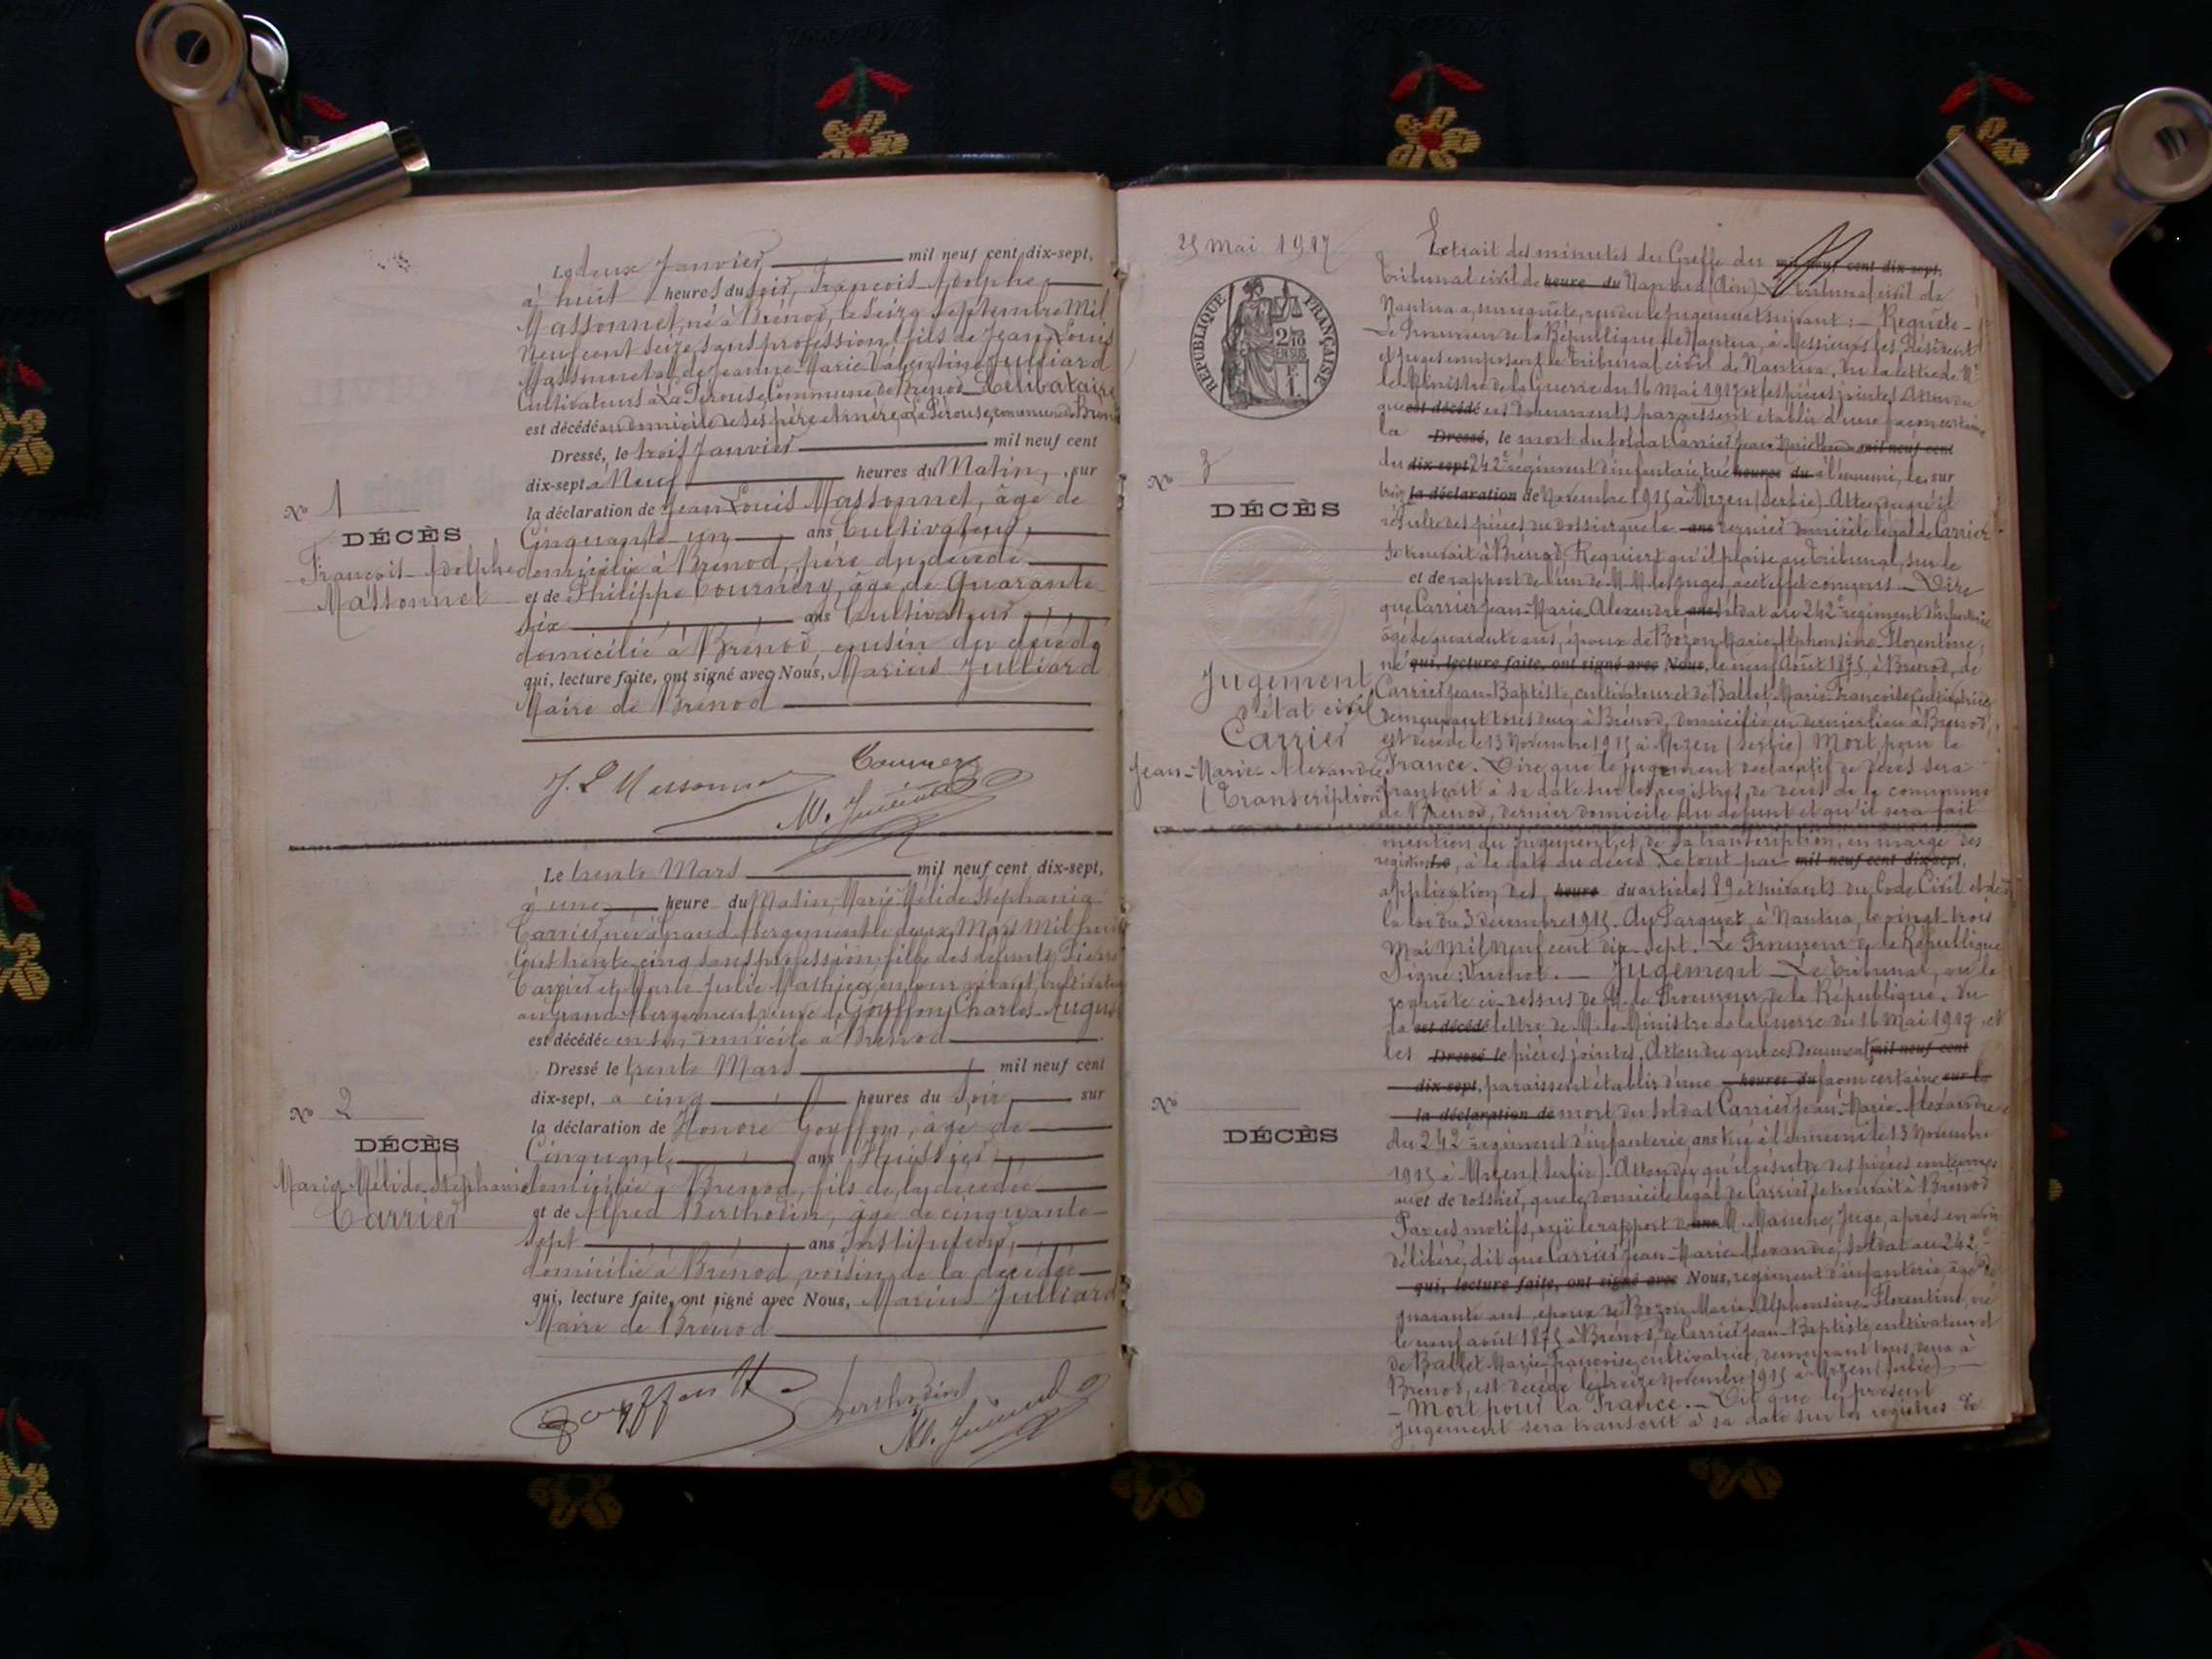 Le deux Janvier mil neuf cent dix-sept,
à huit heures du soir, François-Adolphe
Massonnet, né à Brénod, le seize septembre Mil
neuf cent seize, sans profession, fils de Jean-Louis
Massonnet et de Jeanne-Marie-Valentine Julliard
Cultivateurs à La Pérouse, Commune de Brénod Célibataire
est décédé au domicile de ses père et mère à La Pérouse, commune de Brénod
Dressé, le trois Janvier mil neuf cent
dix-sept, à Neuf heures du Matin, sur
la déclaration de Jean Louis Massonnet, âgé de
Cinquante-un ans Cultivateur,
domicilié à Brénod, père du décédé
et de Philippe Tournery, âgé de Quarante
six ans Cultivateur
domicilié à Brénod, cousin du décédé
qui, lecture faite, ont signé avec Nous, Marius Julliard
Maire de Brénod
No 1
DÉCÈS
François-Adolphe
Massonnet
J. L Massonnet
M. Julliard
Le trente Mars mil neuf cent dix-sept,
à une heure du Matin, Marie Mélide Stéphanie
Carrier, née à Grand Abergement le deux Mars Mil huit
Cent trente-cinq sans profession, fille des défunts Pierre
Carrier et Marie-Julie Mathieu, en leur vivant, Cultivateurs
au Grand-Abergement, veuve de Goyffon, Charles-Auguste
est décédée en son domicile à Brénod
Dressé le trente Mars mil neuf cent
dix-sept, à cinq heures du soir, sur
la déclaration de Honoré Goyffon, âgé de
Cinquante ans Huissier
domicilié à Brénod, fils de la décédée
et de Alfred Berthodin, âgé de cinquante-
sept ans Instituteur,
domicilié à Brénod, voisin de la décédée
qui, lecture faite, ont signé avec Nous, Marius Julliard
Maire de Brénod
No 2
DÉCÈS
Marie-Mélide-Stéphanie
Carrier
Goyffon H
Berthodin
M. Julliard
25 mai 1917
RÉPUBLIQUE FRANÇAISE
2/10
EN SUS
No 3
DÉCÈS
Jugement
d'état civil
Carrier
Jean-Marie-Alexandre
(Transcription)
Extrait des minutes du Greffe du mil neuf cent dix-sept,
Tribunal civil de heure du Nantua (Ain) Le tribunal civil de
Nantua a, sur requête, rendu le jugement suivant : — Requête —
Le Procureur de la République de Nantua, à Messieurs les Président
et juges composant le Tribunal civil de Nantua. Vu la lettre de M.
le Ministre de la Guerre du 16 Mai 1917 et les pièces jointes Attendu
que est décédé ces documents paraissent établir d'une façon certaine
la Dressé, le mort du soldat Carrier Jean-Marie mil neuf cent
du dix-sept, 242e régiment d'infanterie, tué heures du à l'ennemi, le sur
treize la déclaration de Novembre 1915 à Arzen (Serbie) Attendu qu'il
résulte des pièces du dossier que le ans dernier domicile légal de Carrier
se trouvait à Brénod, Requiert qu'il plaise au Tribunal, sur le
et de rapport de l'un de M.M. les juges, à cet effet commis — Dire
que Carrier Jean-Marie-Alexandre ans soldat au 242e régiment d'infanterie
âgé de quarante ans, époux de Bozon Marie Alphonsine-Florentine,
né qui, lecture faite, ont signé avec Nous, le neuf Août 1875, à Brénod, de
Carrier Jean-Baptiste, cultivateur et de Ballet Marie-Françoise cultivatrice
demeurant tous deux à Brénod, domicilié en dernier lieu à Brénod,
est décédé le 13 Novembre 1915 à Arzen (Serbie) Mort pour la
France. Dire que le jugement déclaratif de décès sera
transcrit à sa date sur les registres de décès de la commune
de Brénod, dernier domicile du défunt et qu'il sera fait
mention du Jugement, et de sa transcription, en marge des
registres, à la date du décès. Le tout par mil neuf cent dix-sept,
application des heure du articles 89 et suivants du Code Civil et de
la loi du 3 décembre 1915. Au Parquet, à Nantua, le vingt-trois
Mai Mil Neuf cent dix-sept. Le Procureur de la République
Signé : — Jugement — Le Tribunal, vu la
requête ci-dessus de M. le Procureur de la République. Vu
la est décédé lettre de M. le Ministre de la Guerre du 16 Mai 1917 et
les Dressé le pièces jointes, Attendu que ces documents mil neuf cent
dix-sept, paraissent établir d'une heures du façon certaine sur la
la déclaration de mort du soldat Carrier Jean-Marie-Alexandre
du 242e régiment d'infanterie, ans tué à l'ennemi le 13 Novembre
1915 à Arzen (Serbie). Attendu qu'il résulte des pièces
au et de dossier, que le domicile légal de Carrier se trouvait à Brénod
Par ces motifs, ouï le rapport de ans M. Mauche, Juge, après en avoir
délibéré, dit que Carrier Jean-Marie-Alexandre, soldat au 242e
qui, lecture faite, ont signé avec Nous, régiment d'infanterie, âgé de
quarante ans, époux de Bozon Marie-Alphonsine-Florentine, né
le neuf août 1875 à Brénod, de Carrier Jean-Baptiste, cultivateur et
de Ballet Marie-Françoise, cultivatrice, demeurant tous deux à
Brénod, est décédé le treize Novembre 1915 à Arzen (Serbie) —
— Mort pour la France. — Dit que le présent
jugement sera transcrit à sa date sur les registres de
No
DÉCÈS